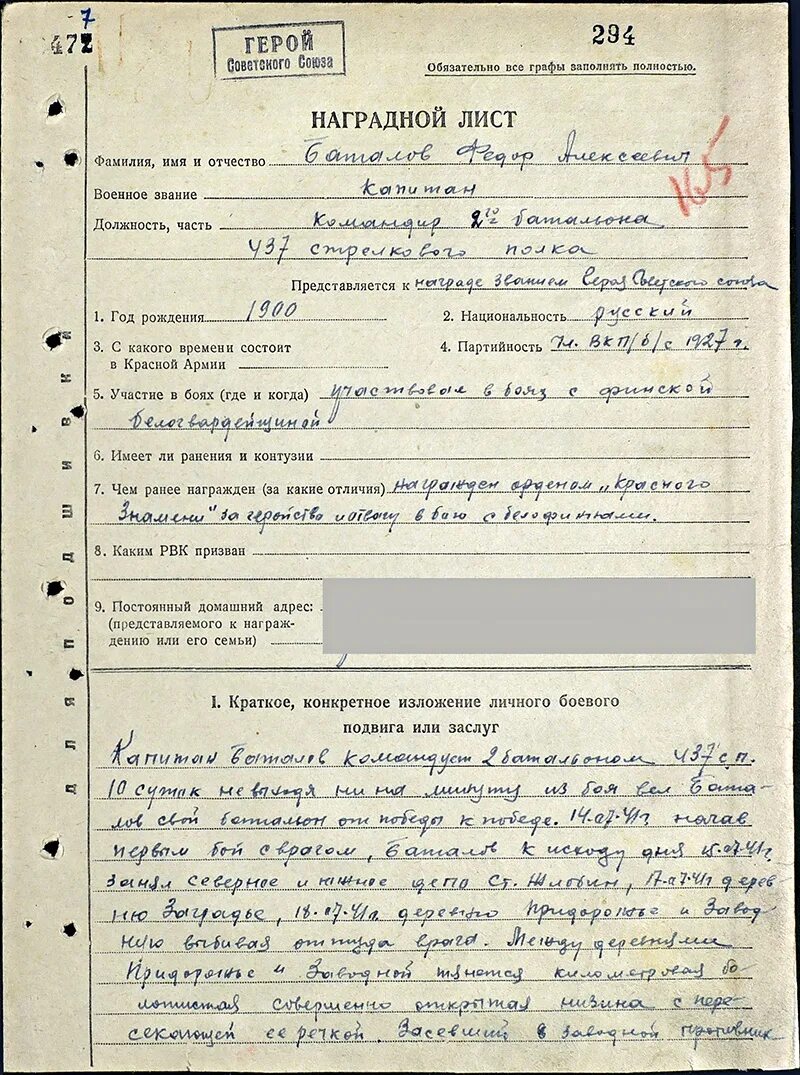 477
7
ГЕРОЙ
Советского Союза
294
Обязательно все графы заполнять полностью.
НАГРАДНОЙ ЛИСТ
165
Фамилия, имя и отчество Баталов Федор Алексеевич
Военное звание Капитан
Должность, часть Командир 2го батальона
437 стрелкового полка
Представляется к награде званием Героя Советского союза
1. Год рождения 1900
2. Национальность русский
3. С какого времени состоит
в Красной Армии
4. Партийность Чл. ВКП/б/ с 1927 г.
5. Участие в боях (где и когда) участвовал в боях с финской
белогвардейщиной
6. Имеет ли ранения и контузии
7. Чем ранее награжден (за какие отличия) награжден орденом „Красного
Знамени" за геройство и отвагу в бою с белофиннами.
8. Каким РВК призван
9. Постоянный домашний адрес:
(представляемого к награж-
дению или его семьи)
Для подшивки
I. Краткое, конкретное изложение личного боевого
подвига или заслуг
Капитан Баталов командует 2 батальоном 437 с п.
10 суток не выходя ни на минуту из боя вел Бата-
лов свой батальон от победы к победе. 14.07.41г. начав
первым бой с врагом, Баталов к исходу дня 15.07.41г.
занял северное и южное депо ст. Жлобин, 17.07.41г дерев-
ню Заградье, 18.07.41г. деревню Придорожье и Завод-
ную выбивая оттуда врага. Между деревнями
Придорожье и Заводной тянется километровая бо-
лотистая совершенно открытая низина с пере-
секающей ее речкой. Засевший в заводной противник